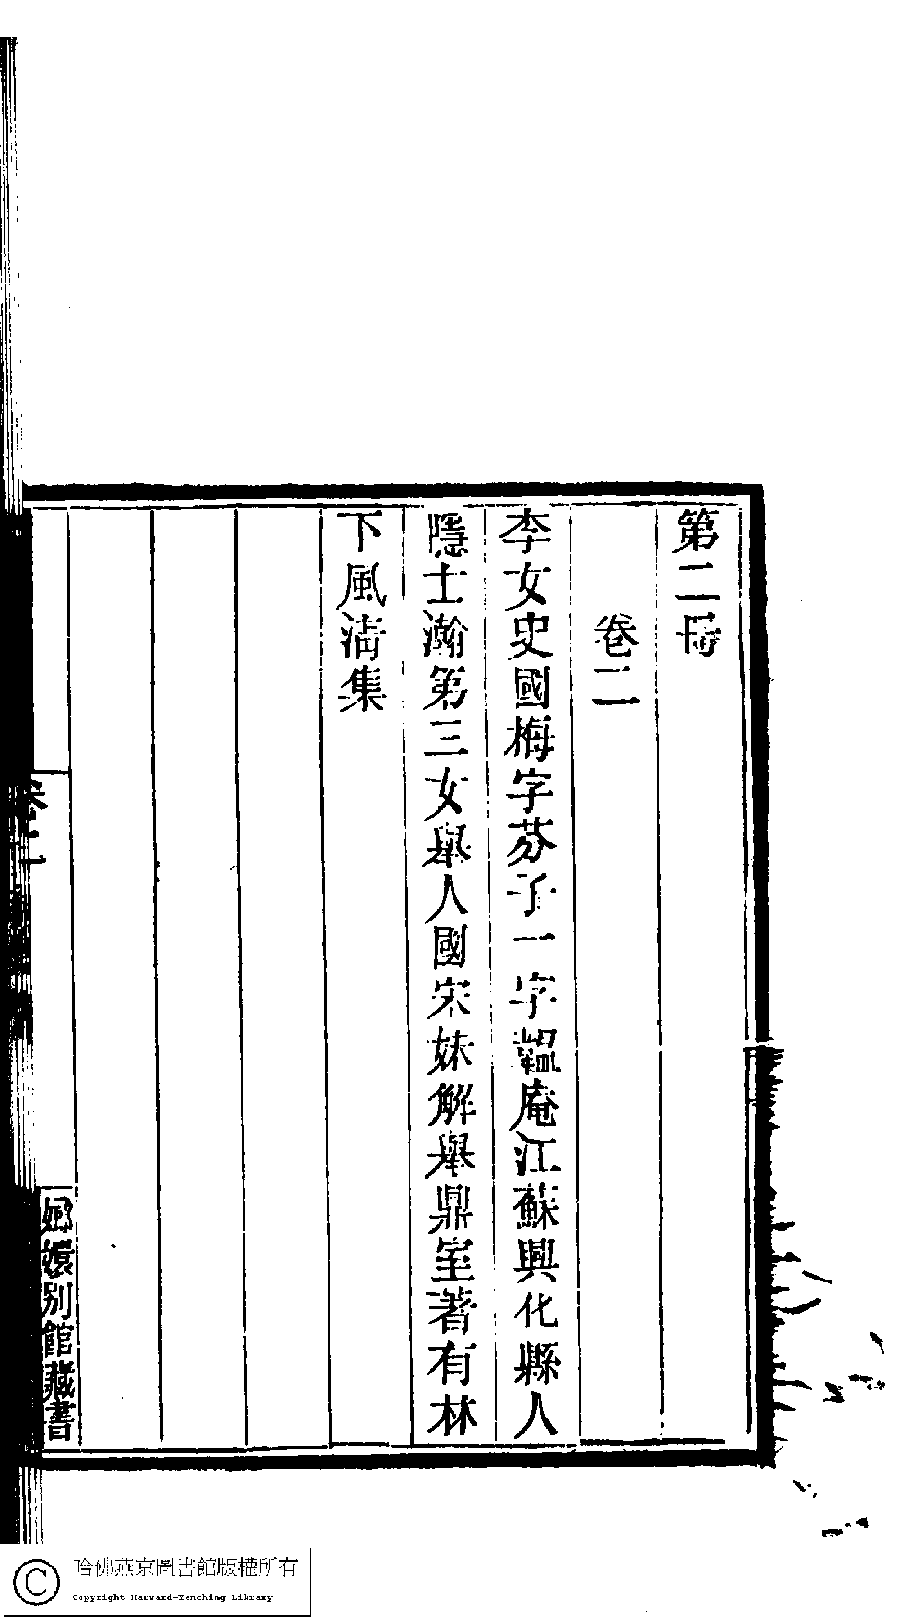 第二冊
卷二
李女史國梅字芬子一字韞庵江蘇興化縣人
隱士瀚第三女舉人國宋妹解舉鼎室著有林
下風淸集
卷二
嫏嬛別館藏書
哈佛燕京圖書館版權所有
Copyright Harvard-Yenching Library